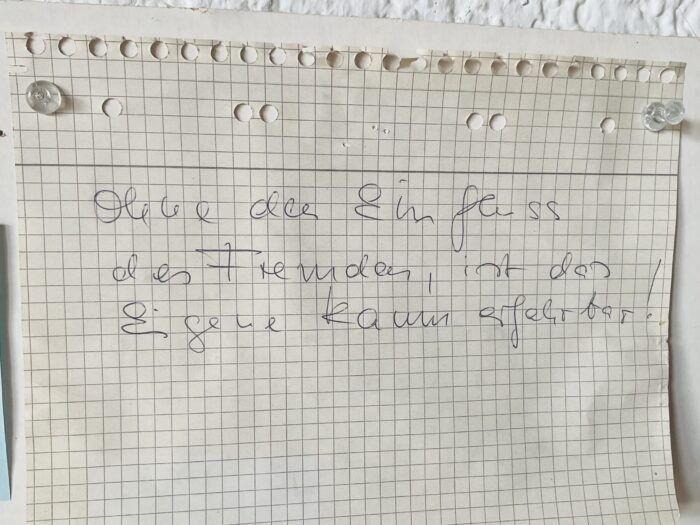 Ohne den Einfluss
des Fremden, ist das
Eigene kaum erfahrbar!